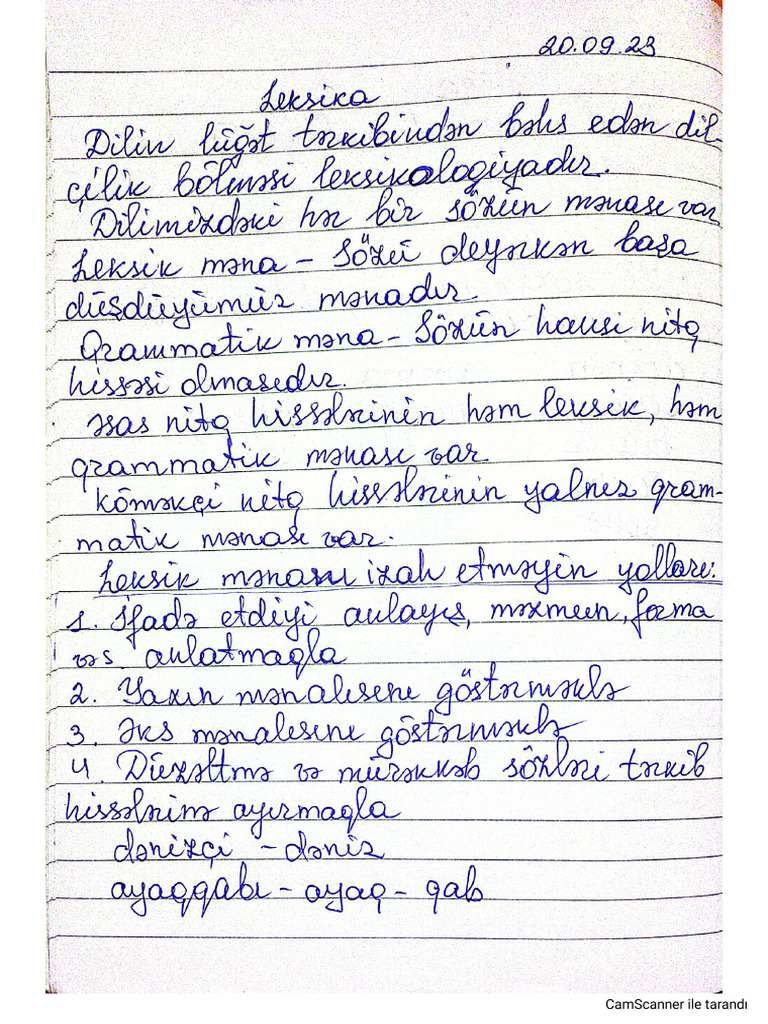 20.09.23
Leksika
Dilin lüğət tərkibindən bəhs edən dil-
çilik bölməsi leksikalogiyadır.
Dilimizdəki hər bir sözün mənası var
Leksik məna – Sözü deyərkən başa
düşdüyümüz mənadır.
Qrammatik məna – Sözün hansı nitq
hissəsi olmasıdır.
Əsas nitq hissələrinin həm leksik, həm
qrammatik mənası var.
Köməkçi nitq hissələrinin yalnız qram-
matik mənası var.
Leksik mənanı izah etməyin yolları:
1. İfadə etdiyi anlayış, məzmun, forma
və s. anlatmaqla
2. Yaxın mənalısını göstərməklə
3. Əks mənalısını göstərməklə
4. Düzəltmə və mürəkkəb sözləri tərkib
hissələrinə ayırmaqla
dənizçi – dəniz
ayaqqabı – ayaq – qab
CamScanner ile tarandı